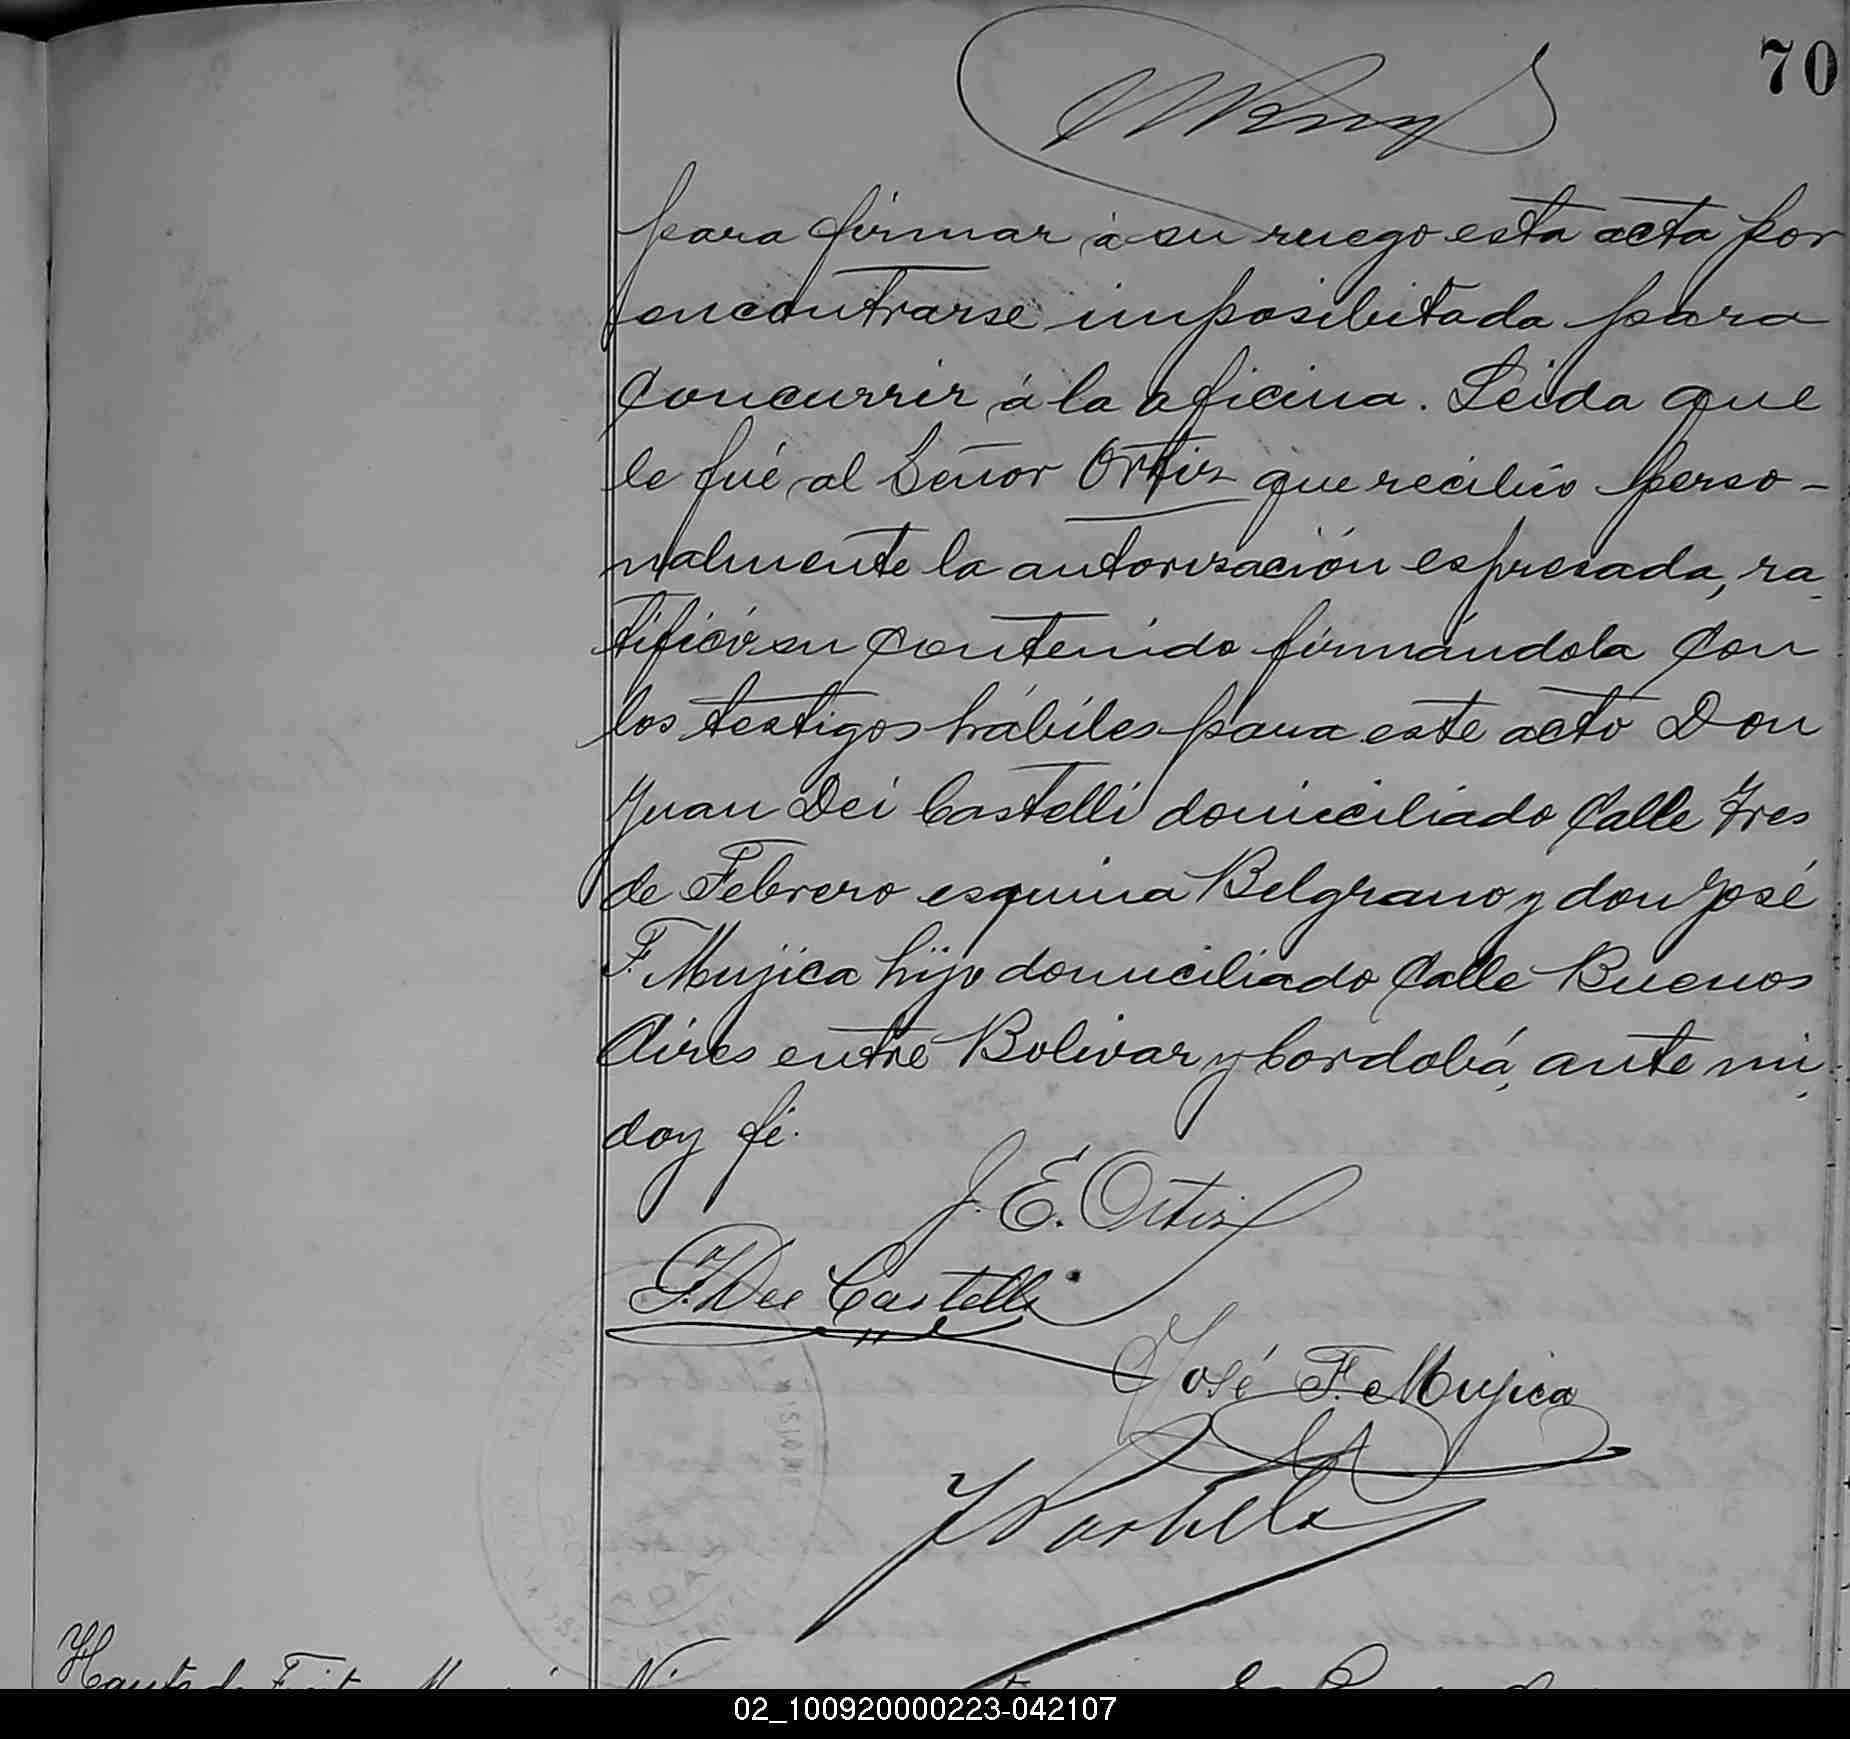 70
para firmar à su ruego esta acta por
encontrarse imposibitada para
Concurrir á la oficina. Leida que
le fué al Señor Ortiz que recibió perso-
nalmente la autorización espresada, ra-
tificó su contenido firmándola con
los testigos hábiles para este acto Don
Juan Dei Castelli domiciliado Calle Tres
de Febrero esquina Belgrano y don José
F. Mujica hijo domiciliado Calle Buenos
Aires entre Bolivar y Cordobá, ante mi,
doy fé.
J. E. Ortiz
G. Dei Castelli
José F. Mujica
02_100920000223-042107